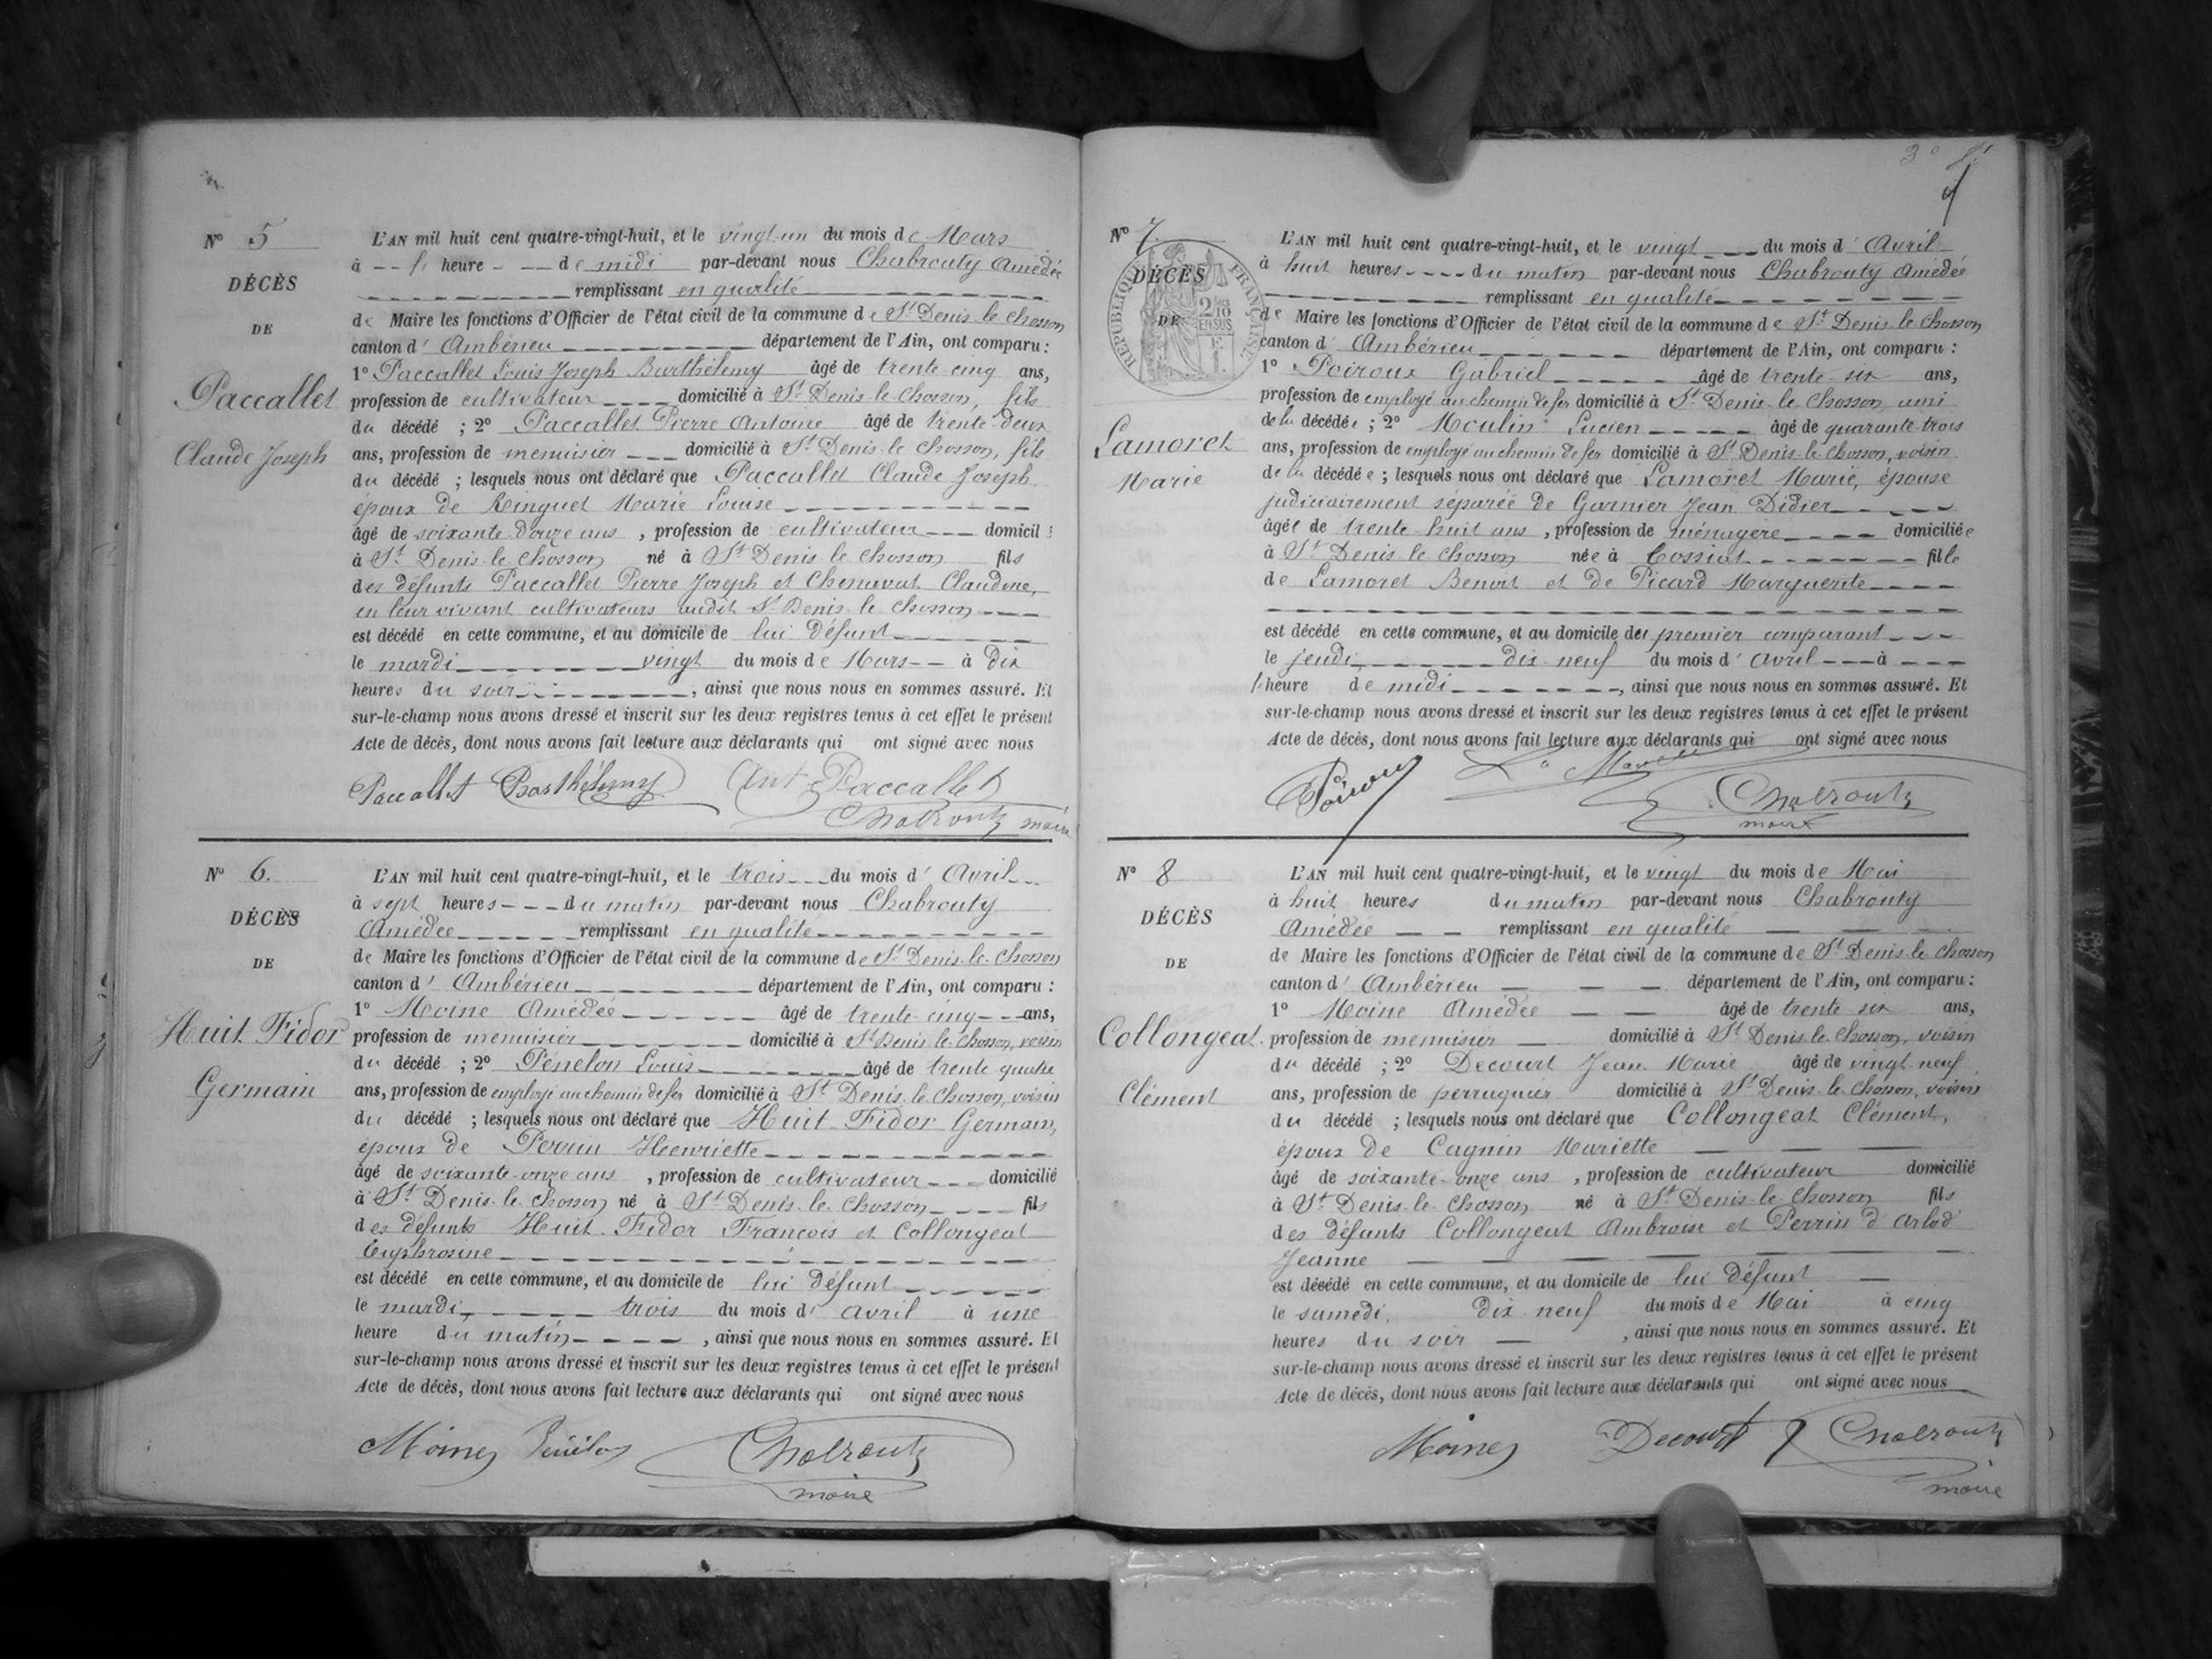 Nº 5
DÉCÈS
DE
Paccallet
Claude Joseph
L'AN mil huit cent quatre-vingt-huit, et le vingt-un du mois de Mars
à heure de midi par-devant nous Chabrouty Amédée
remplissant en qualité
de Maire les fonctions d'Officier de l'état civil de la commune de St Denis-le-Chosson
canton d'Ambérieu département de l'Ain, ont comparu :
1º Paccallet Louis Joseph Barthélemy âgé de trente-cinq ans,
profession de cultivateur domicilié à St Denis-le-Chosson, fils
du décédé ; 2º Paccallet Pierre Antoine âgé de trente-deux
ans, profession de menuisier domicilié à St Denis-le-Chosson, fils
du décédé ; lesquels nous ont déclaré que Paccallet Claude Joseph
époux de Ringuet Marie Louise
âgé de soixante-douze ans , profession de cultivateur domicil
à St Denis-le-Chosson né à St Denis-le-Chosson fils
des défunts Paccallet Pierre Joseph et Chenavat Claudine,
en leur vivant cultivateurs audit St Denis-le-Chosson
est décédé en cette commune, et au domicile de lui défunt
le mardi vingt du mois de Mars à dix
heures du soir , ainsi que nous nous en sommes assuré. Et
sur-le-champ nous avons dressé et inscrit sur les deux registres tenus à cet effet le présent
Acte de décès, dont nous avons fait lecture aux déclarants qui ont signé avec nous
Paccallet Barthélemy Ant Paccallet
Chabrouty maire
Nº 6.
DÉCÈS
DE
Huit Fidor
Germain
L'AN mil huit cent quatre-vingt-huit, et le trois du mois d'Avril
à sept heures du matin par-devant nous Chabrouty
Amédée remplissant en qualité
de Maire les fonctions d'Officier de l'état civil de la commune de St Denis-le-Chosson
canton d'Ambérieu département de l'Ain, ont comparu :
1º Moine Amédée âgé de trente-cinq ans,
profession de menuisier domicilié à St Denis-le-Chosson, voisin
du décédé ; 2º Pénelon Louis âgé de trente-quatre
ans, profession de employé au chemin de fer domicilié à St Denis-le-Chosson, voisin
du décédé ; lesquels nous ont déclaré que Huit-Fidor Germain,
époux de Perrin Henriette
âgé de soixante-onze ans , profession de cultivateur domicilié
à St Denis-le-Chosson né à St Denis-le-Chosson fils
des défunts Huit-Fidor François et Collongeat
Euphrosine
est décédé en cette commune, et au domicile de lui défunt
le mardi trois du mois d'avril à une
heure du matin , ainsi que nous nous en sommes assuré. Et
sur-le-champ nous avons dressé et inscrit sur les deux registres tenus à cet effet le présent
Acte de décès, dont nous avons fait lecture aux déclarants qui ont signé avec nous
Moine Pénelon Chabrouty
maire
3e
Nº 7.
DÉCÈS
DE
RÉPUBLIQUE FRANÇAISE
2/10 EN SUS
Lamoret
Marie
L'AN mil huit cent quatre-vingt-huit, et le vingt du mois d'Avril
à huit heures du matin par-devant nous Chabrouty Amédée
remplissant en qualité
de Maire les fonctions d'Officier de l'état civil de la commune de St Denis-le-Chosson
canton d'Ambérieu département de l'Ain, ont comparu :
1º Poiroux Gabriel âgé de trente-six ans,
profession de employé au chemin de fer domicilié à St Denis-le-Chosson, ami
de la décédée ; 2º Moulin Lucien âgé de quarante-trois
ans, profession de employé au chemin de fer domicilié à St Denis-le-Chosson, voisin
de la décédée ; lesquels nous ont déclaré que Lamoret Marie, épouse
judiciairement séparée de Garnier Jean Didier
âgée de trente-huit ans , profession de ménagère domiciliée
à St Denis-le-Chosson née à Cossiat fille
de Lamoret Benoit et de Picard Marguerite
est décédé en cette commune, et au domicile du premier comparant
le jeudi dix-neuf du mois d'avril à
heure de midi , ainsi que nous nous en sommes assuré. Et
sur-le-champ nous avons dressé et inscrit sur les deux registres tenus à cet effet le présent
Acte de décès, dont nous avons fait lecture aux déclarants qui ont signé avec nous
Poiroux Chabrouty
maire
Nº 8
DÉCÈS
DE
Collongeat
Clément
L'AN mil huit cent quatre-vingt-huit, et le vingt du mois de Mai
à huit heures du matin par-devant nous Chabrouty
Amédée remplissant en qualité
de Maire les fonctions d'Officier de l'état civil de la commune de St Denis-le-Chosson
canton d'Ambérieu département de l'Ain, ont comparu :
1º Moine Amédée âgé de trente-six ans,
profession de menuisier domicilié à St Denis-le-Chosson, voisin
du décédé ; 2º Decourt Jean-Marie âgé de vingt-neuf
ans, profession de perruquier domicilié à St Denis-le-Chosson, voisin
du décédé ; lesquels nous ont déclaré que Collongeat Clément,
époux de Cagnin Mariette
âgé de soixante-onze ans , profession de cultivateur domicilié
à St Denis-le-Chosson né à St Denis-le-Chosson fils
des défunts Collongeat Ambroise et Perrin d'Arlod
Jeanne
est décédé en cette commune, et au domicile de lui défunt
le samedi, dix-neuf du mois de Mai à cinq
heures du soir , ainsi que nous nous en sommes assuré. Et
sur-le-champ nous avons dressé et inscrit sur les deux registres tenus à cet effet le présent
Acte de décès, dont nous avons fait lecture aux déclarants qui ont signé avec nous
Moine Decourt Chabrouty
maire